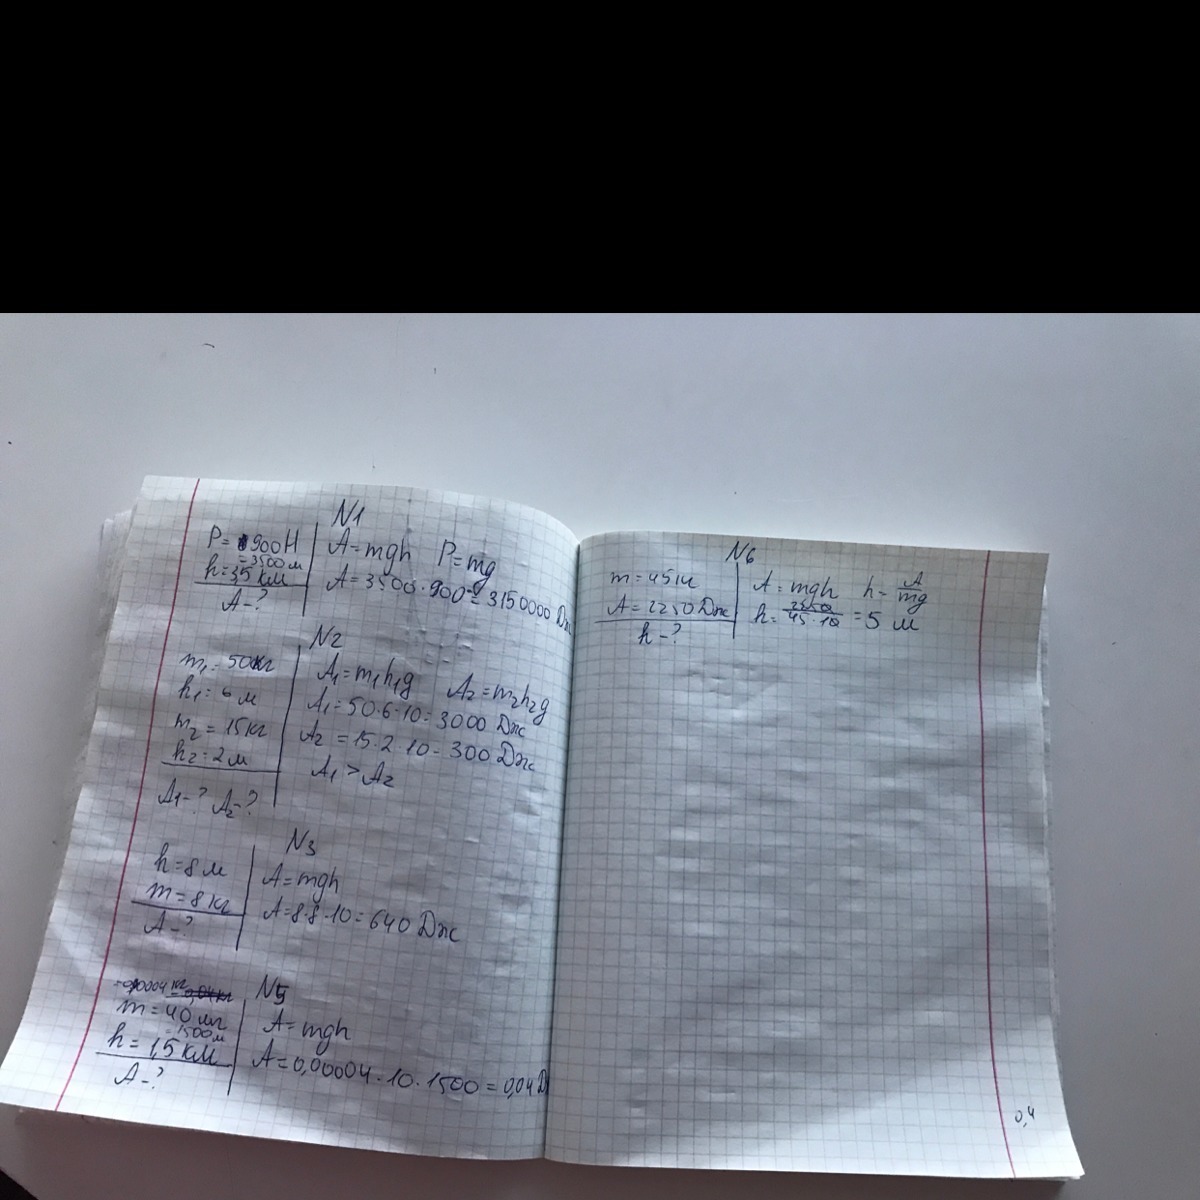 N1
P= 900Н
=3500 м
h=3,5 км
A-?
A=mgh P=mg
A=3500·900=3150000 Дж
N2
m₁=50кг
h₁=6 м
m₂=15кг
h₂=2м
A₁-? A₂-?
A₁=m₁h₁g A₂=m₂h₂g
A₁=50·6·10=3000 Дж
A₂=15·2·10=300 Дж
A₁>A₂
N3
h=8м
m=8кг
A-?
A=mgh
A=8·8·10=640 Дж
N5
=0,00004 кг
m=40 мг
=1500м
h=1,5 км
A-?
A=mgh
A=0,00004·10·1500=0,04 Д
N6
m=45кг
A=2250 Дж
h-?
A=mgh h=A/mg
h=2250/45·10=5 м
0,4